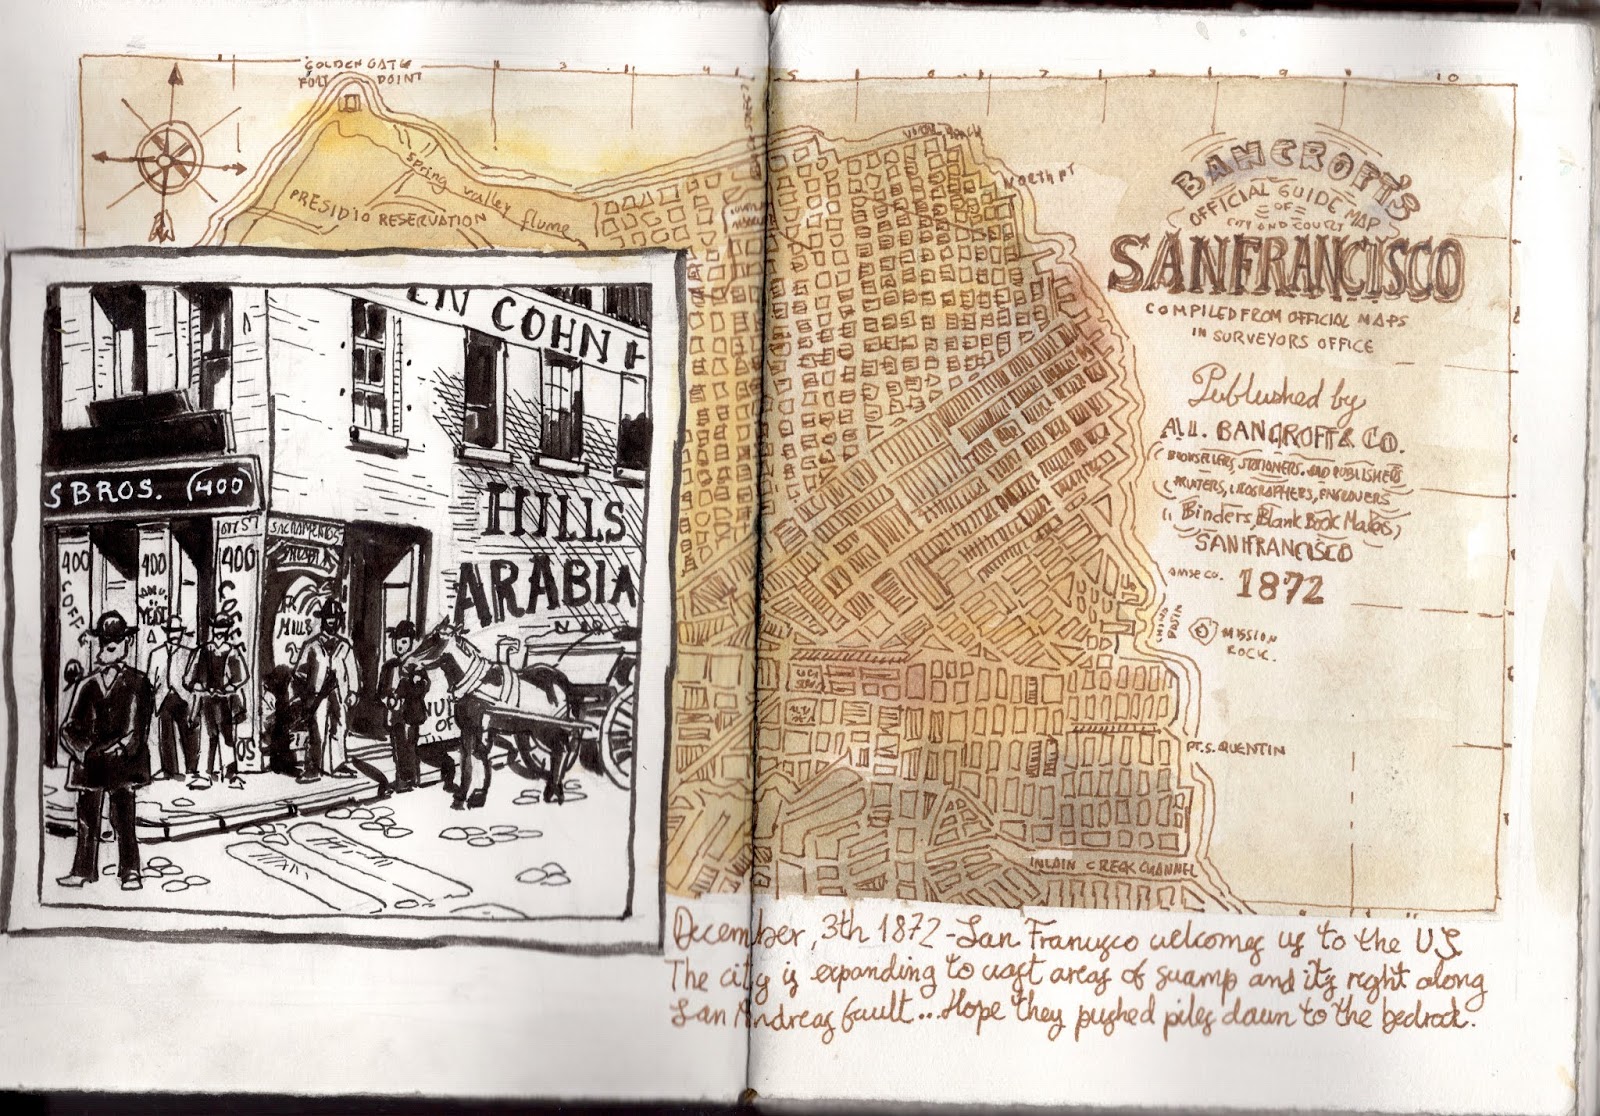 GOLDEN GATE
FORT POINT
3
4
5
6
7
8
9
10
Spring valley flume
PRESIDIO RESERVATION
NORTH PT
BANCROFT'S
OFFICIAL GUIDE MAP
OF
CITY AND COUNTY
SANFRANCISCO
COMPILED FROM OFFICIAL MAPS
IN SURVEYORS OFFICE
Published by
A.L. BANCROFT & CO.
BOOKSELLERS, STATIONERS, AND PUBLISHERS
PRINTERS, LITHOGRAPHERS, ENGRAVERS
Binders, Blank Book Makers
SANFRANCISCO
1872
CHINA BASIN
MISSION
ROCK.
PT. S. QUENTIN
INDAIN CREEK CHANNEL
EN COHN
S BROS. (400
HILLS
ARABIA
400
COFFEE
400
MEAT
400
SACRAMENTO ST
MILLS
OF
December, 3th 1872 - San Francisco welcomes us to the U.S.
The city is expanding to vast areas of swamp and it's right along
San Andreas fault... Hope they pushed piles down to the bedrock.